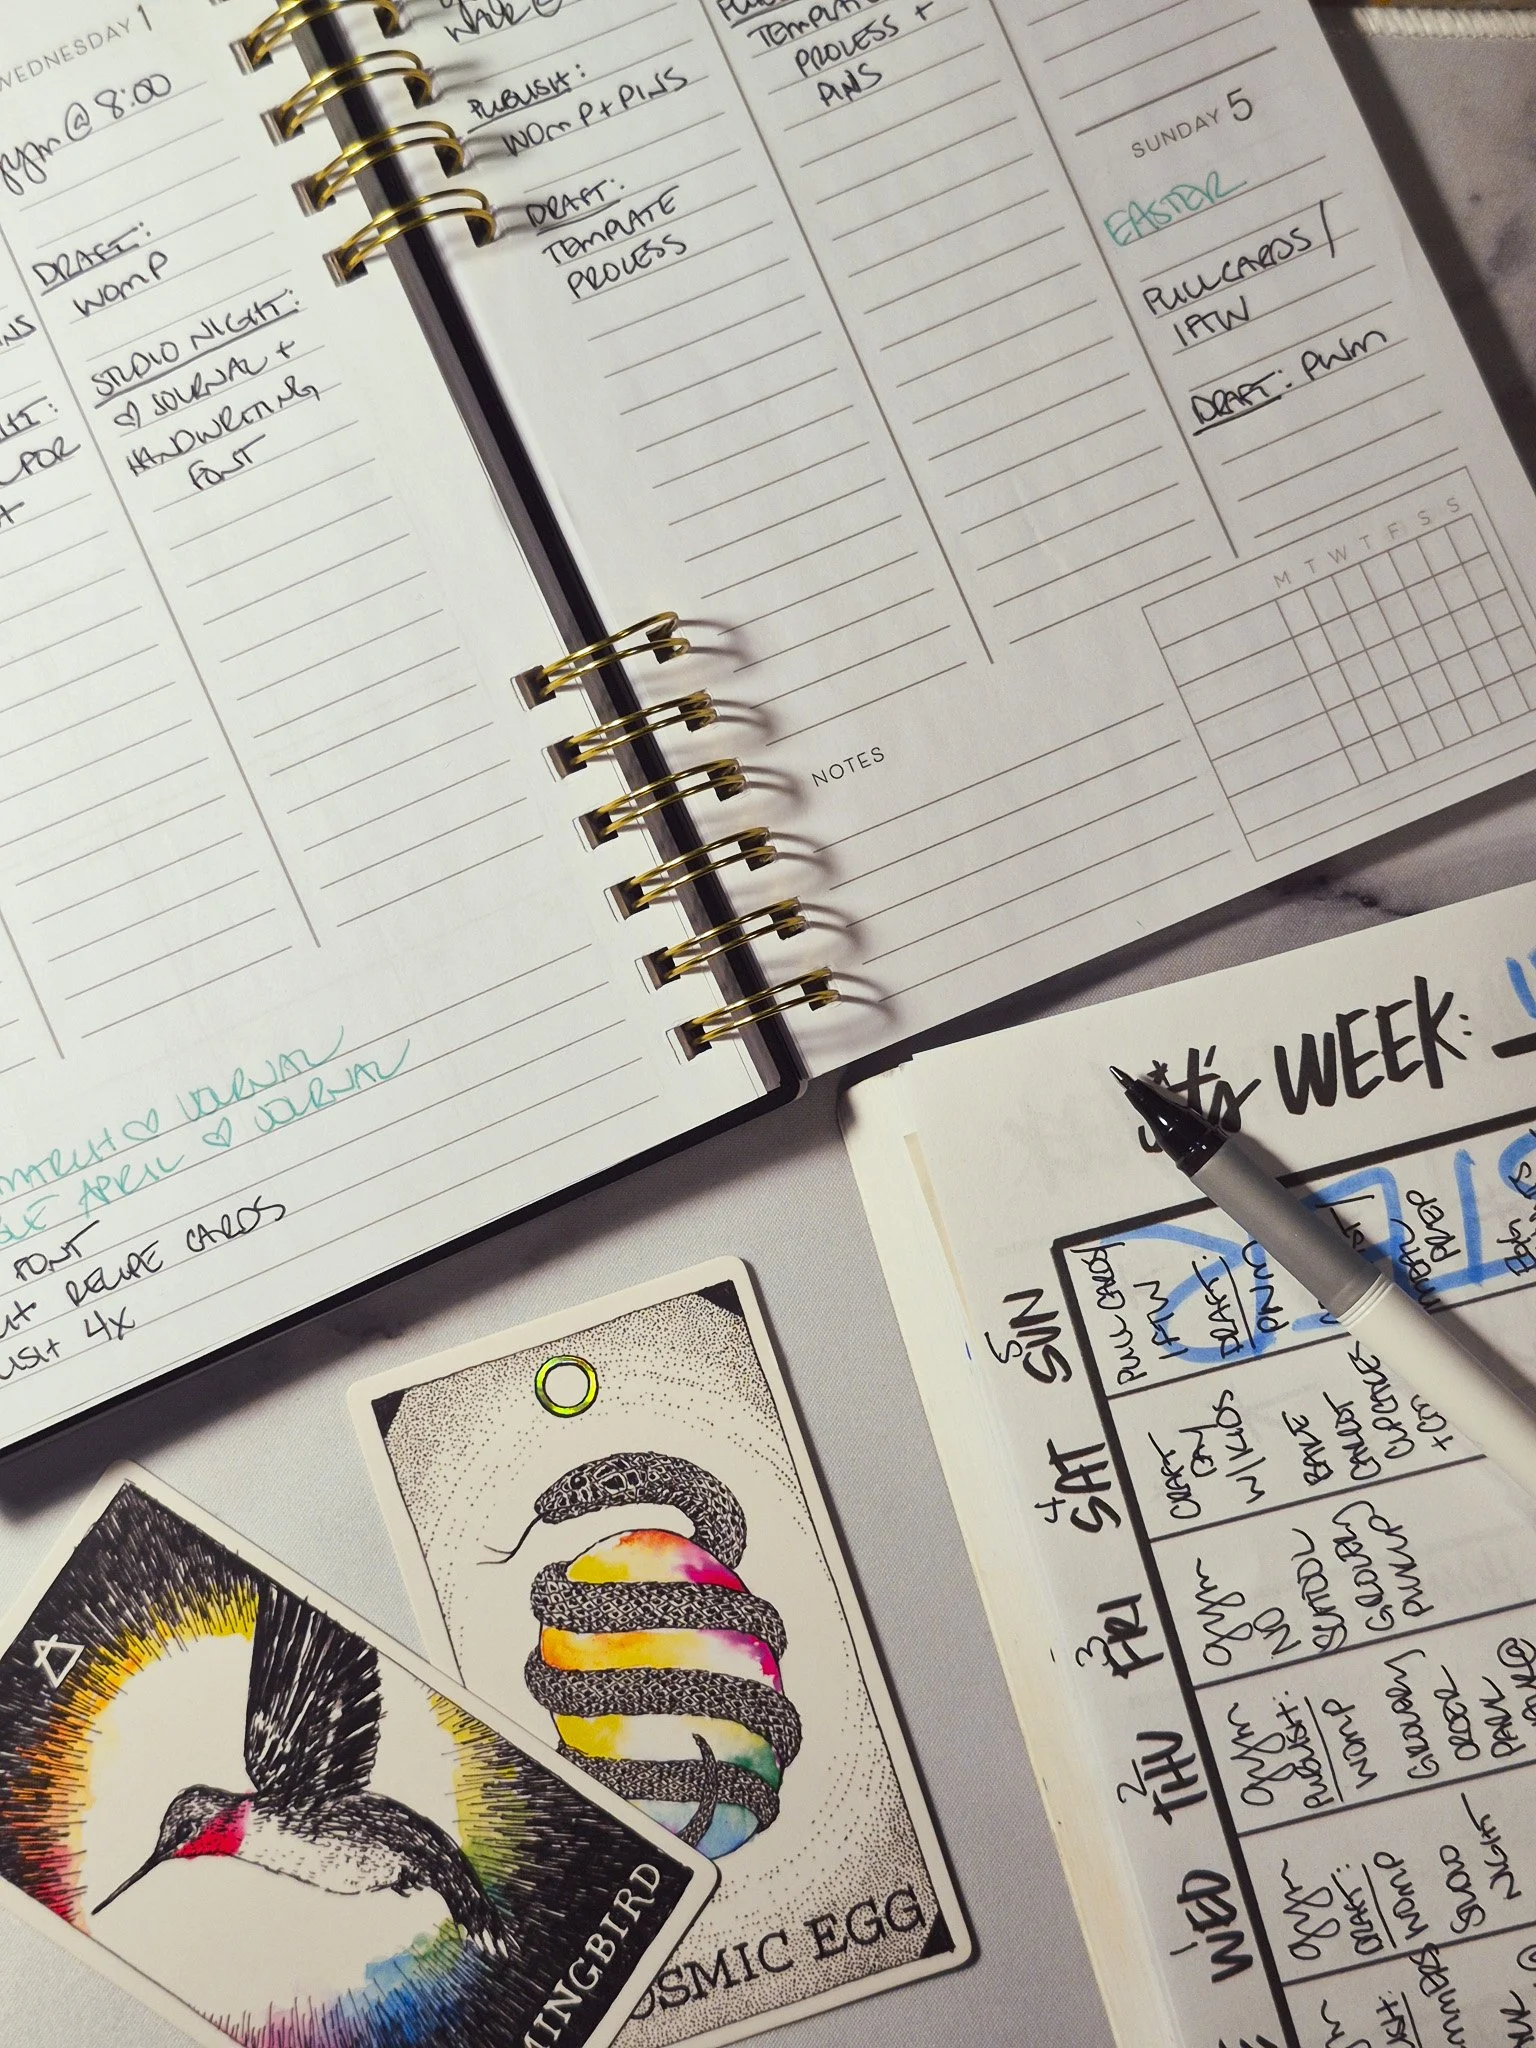 WEDNESDAY 1
gym @ 8:00
DRAFT:
WOMP
STUDIO NIGHT:
♡ JOURNAL +
HANDWRITING
FONT
PUBLISH:
WOMP + PINS
DRAFT:
TEMPLATE
PROCESS
TEMPLATE
PROCESS +
PINS
SUNDAY 5
EASTER
PULL CARDS /
IFTW
DRAFT: PWM
M T W T F S S
NOTES
MARCH ♡ JOURNAL
APRIL ♡ JOURNAL
FONT
RECIPE CARDS
4X
WEEK:
5 SUN
PULL CARDS/
IFTW
DRAFT:
PWM
MEAL
PREP
4 SAT
CRAFT
DAY
W/KIDS
BAKE
CARROT
CUPCAKES
3 FRI
gym
NO
SCHOOL
GROCERY
PICKUP
2 THU
gym
PUBLISH:
WOMP
GROCERY
ORDER
1 WED
gym
DRAFT:
WOMP
STUDIO
NIGHT
COSMIC EGG
MINGBIRD